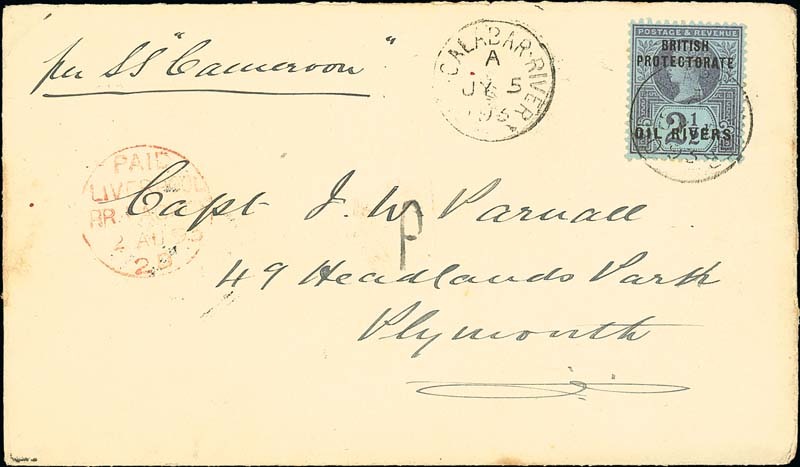 per SS "Cameroon"
CALABAR·RIVER
A
JY 5
93
POSTAGE & REVENUE
BRITISH
PROTECTORATE
OIL RIVERS
2½
PAID
LIVERPOOL
BR.
2 AU 93
2B
Capt J. W. Parnall
P
49 Headlands Park
Plymouth